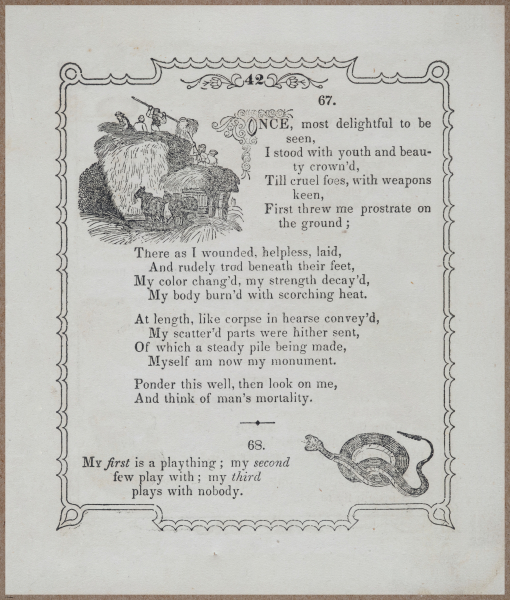 42
67.
ONCE, most delightful to be
seen,
I stood with youth and beau-
ty crown'd,
Till cruel foes, with weapons
keen,
First threw me prostrate on
the ground;
There as I wounded, helpless, laid,
And rudely trod beneath their feet,
My color chang'd, my strength decay'd,
My body burn'd with scorching heat.
At length, like corpse in hearse convey'd,
My scatter'd parts were hither sent,
Of which a steady pile being made,
Myself am now my monument.
Ponder this well, then look on me,
And think of man's mortality.
68.
My first is a plaything; my second
few play with; my third
plays with nobody.